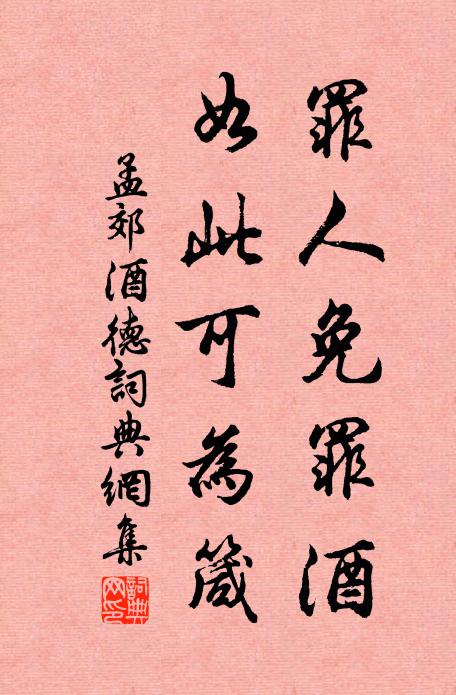 罪人免罪酒
如此可為箴
孟郊酒德詞典網集
詞典網印